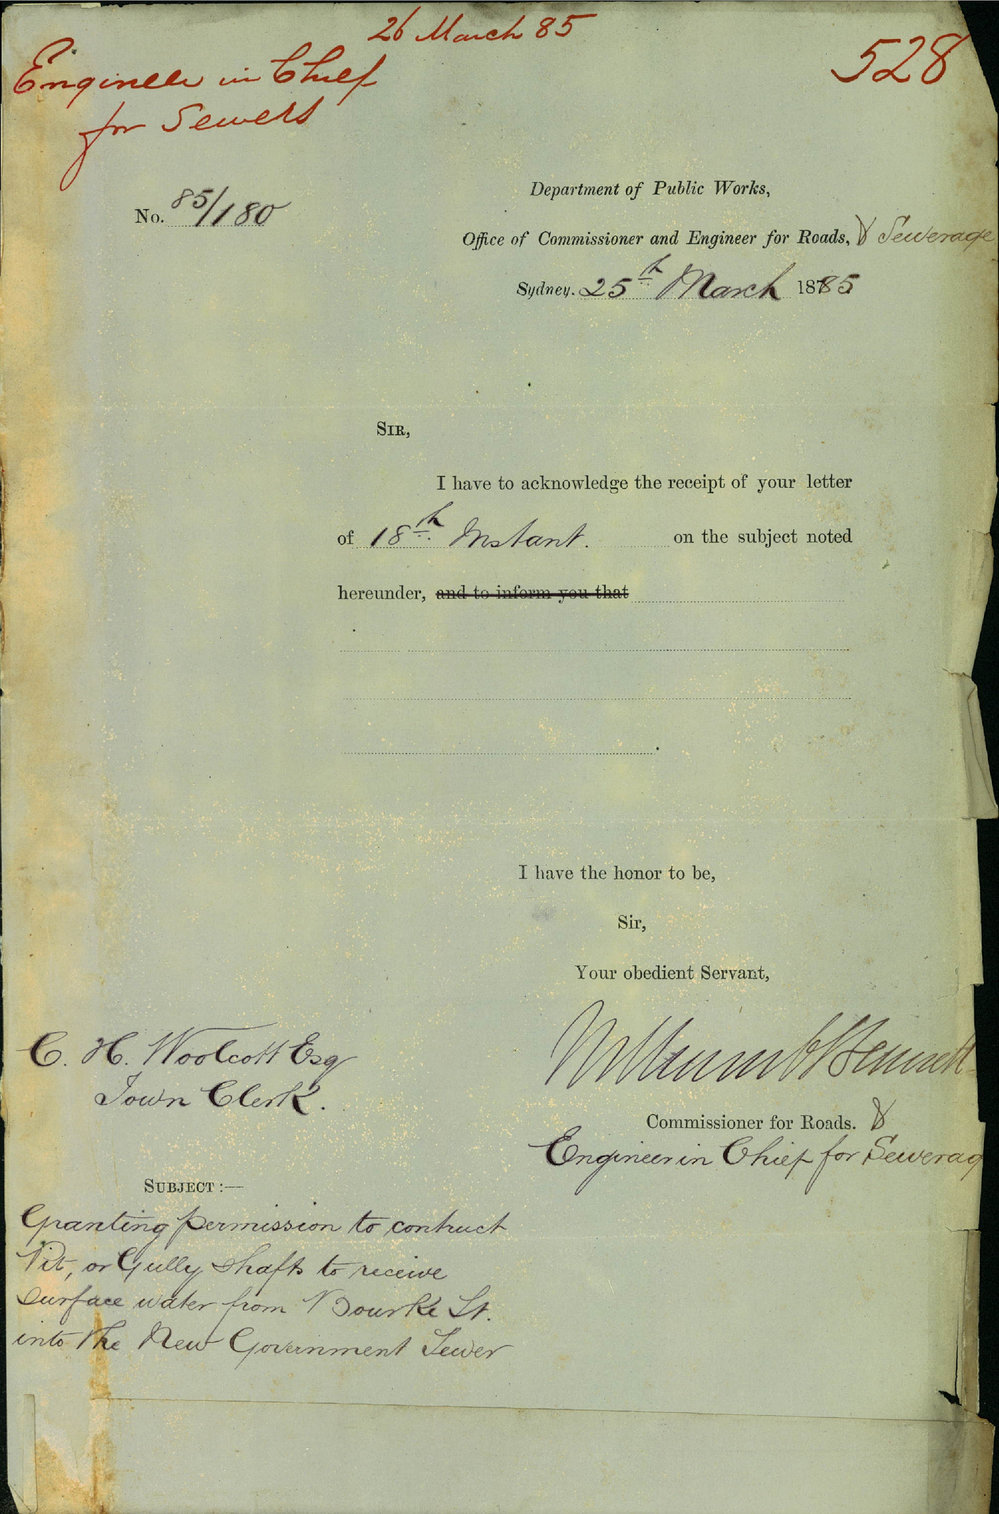 26 March 85
528
Engineer in Chief
for Sewers
Department of Public Works,
No. 85/180
Office of Commissioner and Engineer for Roads, & Sewerage
Sydney. 25th March 1885
SIR,
I have to acknowledge the receipt of your letter
of 18th Instant. on the subject noted
hereunder, and to inform you that
I have the honor to be,
Sir,
Your obedient Servant,
C. H. Woolcott Esq
Town Clerk.
Bennett
Commissioner for Roads. &
Engineer in Chief for Sewerag
SUBJECT:—
Granting permission to contruct
Pit, or Gully Shafts to receive
surface water from Bourke St.
into the New Government Sewer